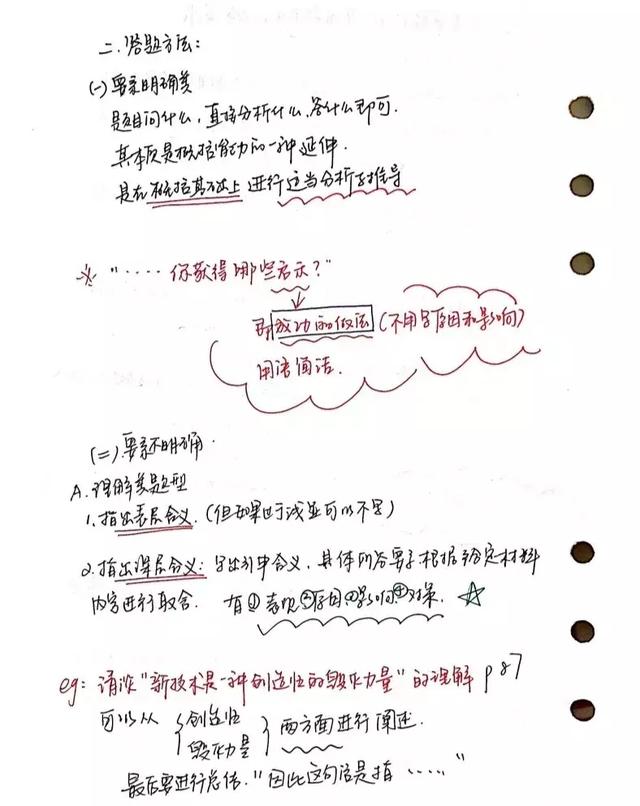 二.答题方法:
(一)要素明确类
题目问什么,直接分析什么,答什么即可.
其本质是概括能力的一种延伸.
是在概括其础上进行适当分析与推导
※ "……你获得哪些启示?"
即成功的做法(不用写原因和影响)
用语简洁.
(二).要素不明确.
A.理解类题型
1.指出表层含义.(但如果过于浅显可以不写)
2.指出深层含义:写出引申含义,具体所答要素根据给定材料
内容进行取舍. 有①表现②原因③影响④对策. ☆
eg:请谈"新技术是一种创造性的毁灭力量"的理解 p87
可以从 { 创造性
毁灭力量 } 两方面进行阐述.
最后要进行总结."因此这句话是指……"